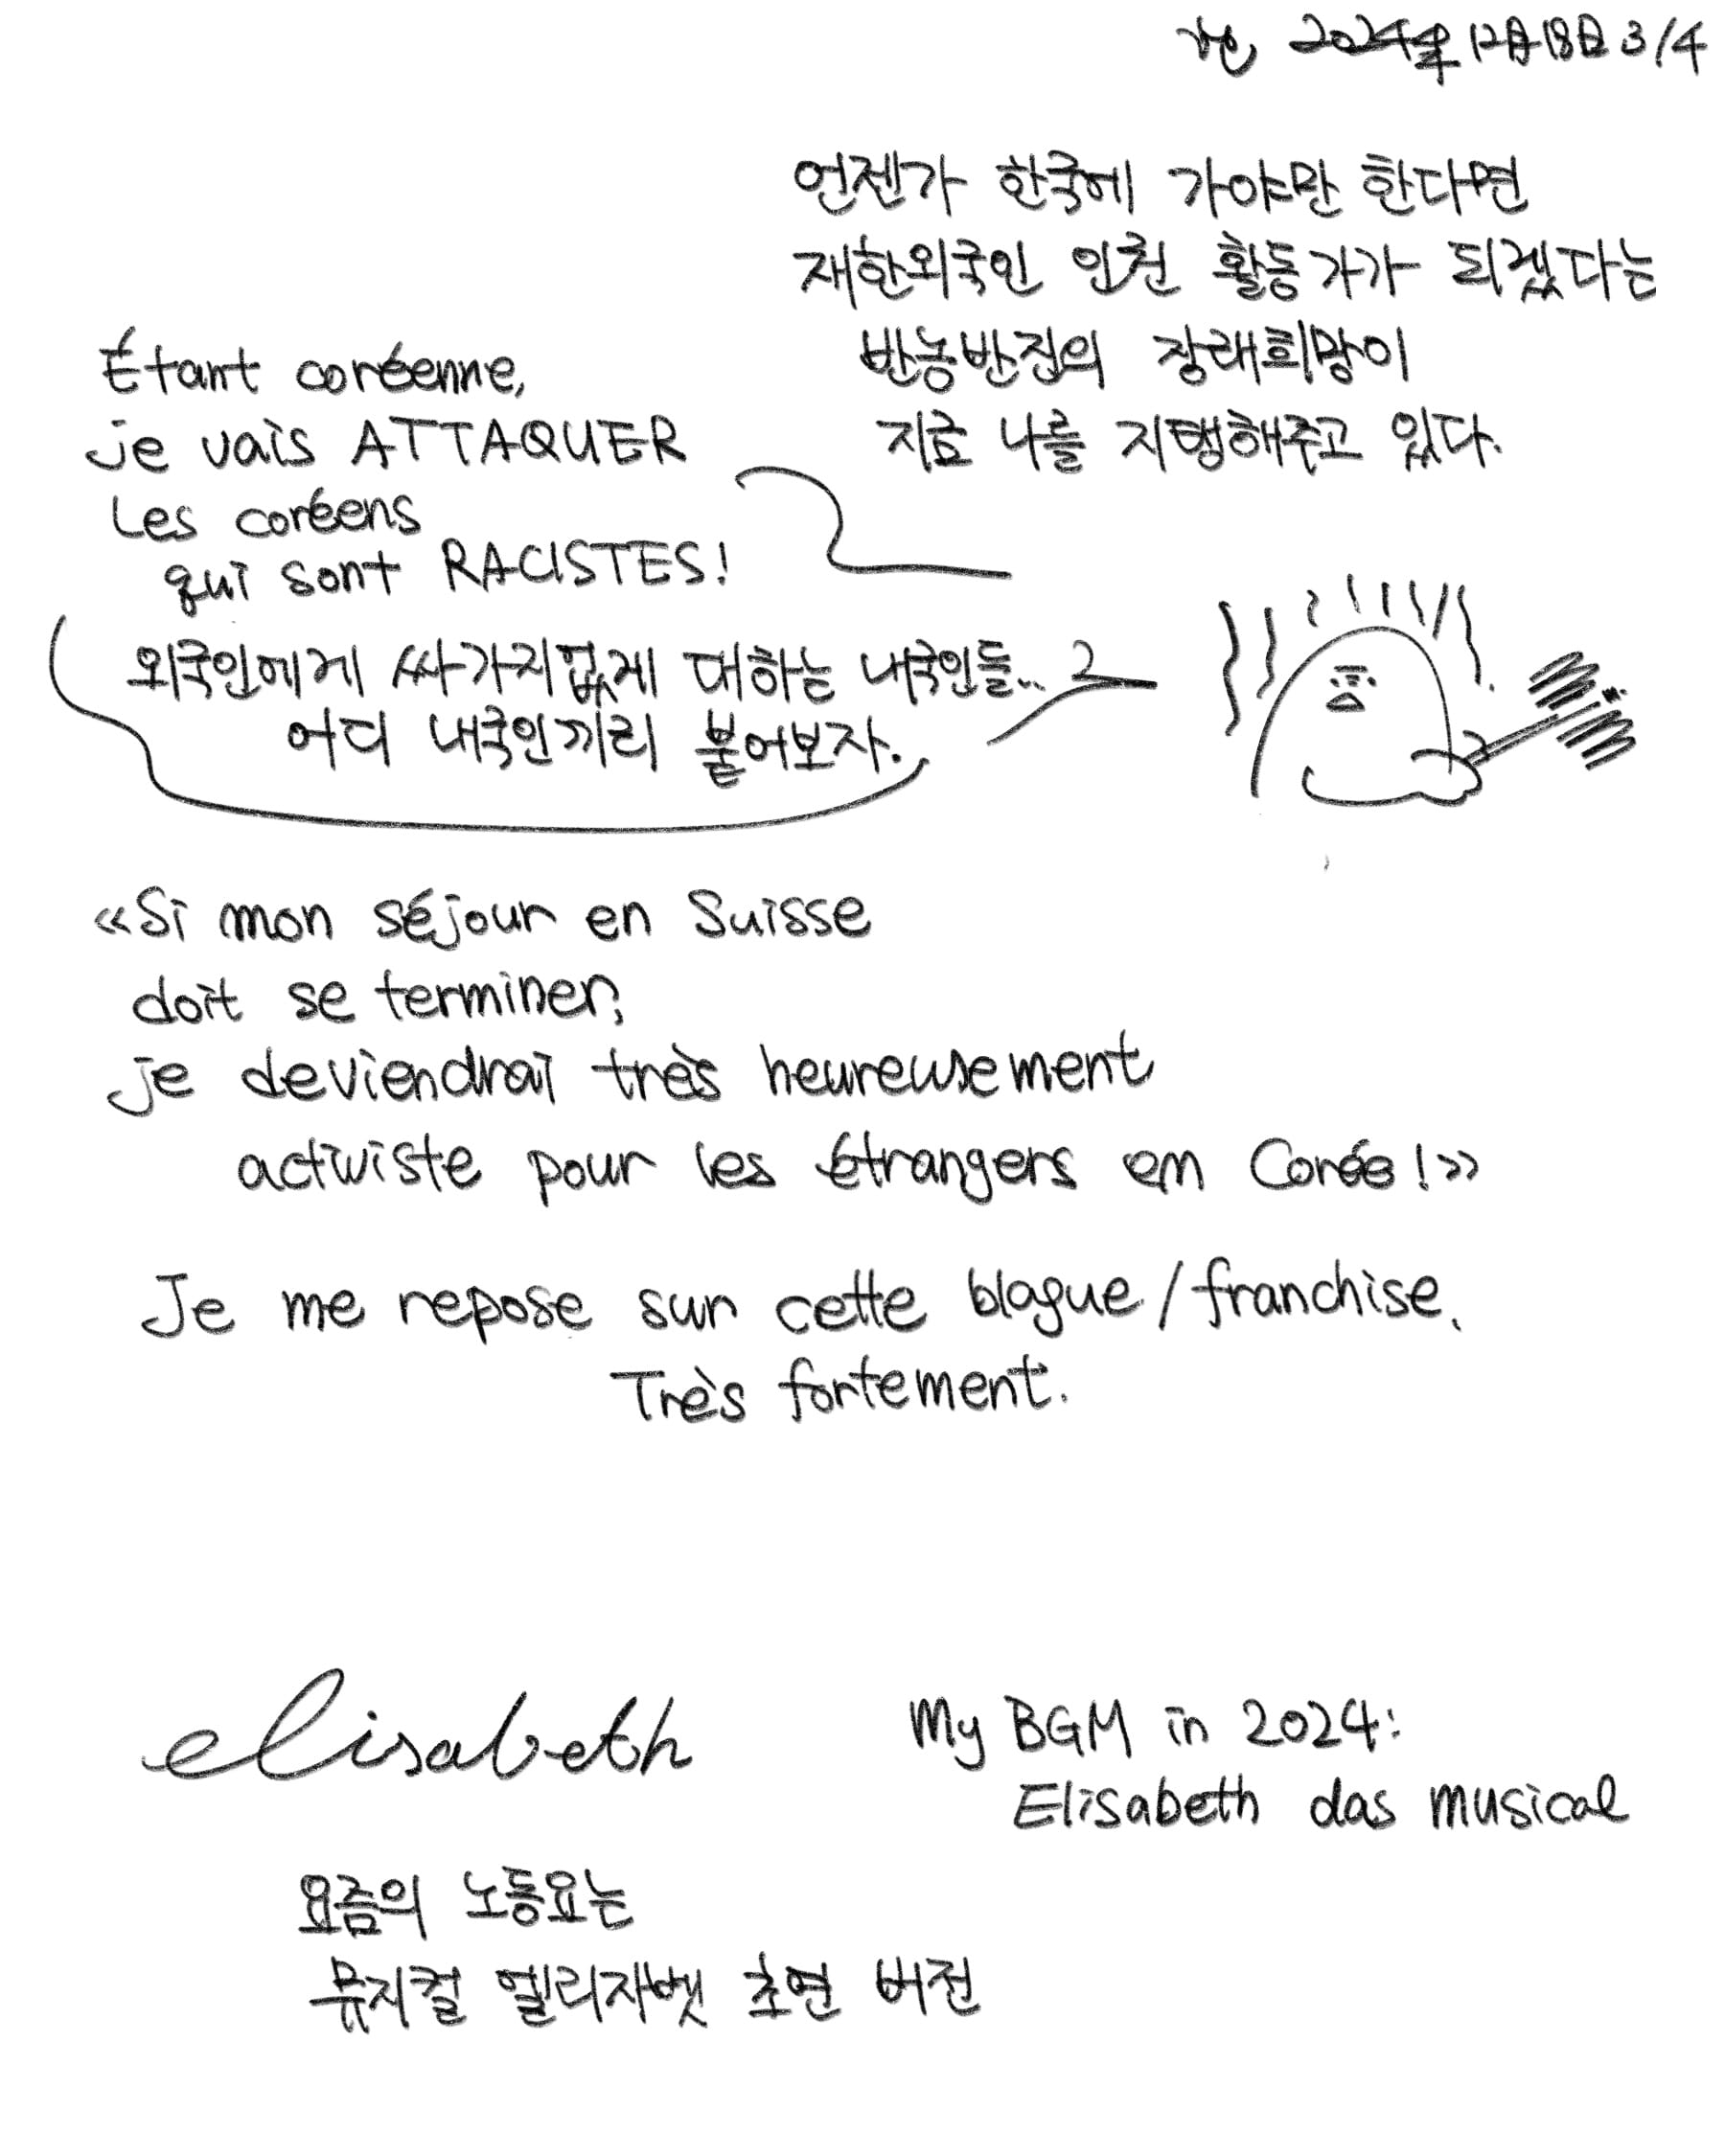 2024年12月18日 3/4
언젠가 한국에 가야만 한다면
재한외국인 인권 활동가가 되겠다는
반농반진의 장래희망이
지금 나를 지탱해주고 있다.
Étant coréenne,
je vais ATTAQUER
les coréens
qui sont RACISTES!
외국인에게 싸가지없게 대하는 내국인들...
어디 내국인끼리 붙어보자.
«Si mon séjour en Suisse
doit se terminer,
je deviendrai très heureusement
activiste pour les étrangers en Corée!»
Je me repose sur cette blague/franchise.
Très fortement.
elisabeth
My BGM in 2024:
Elisabeth das musical
요즘의 노동요는
뮤지컬 엘리자벳 초연 버전